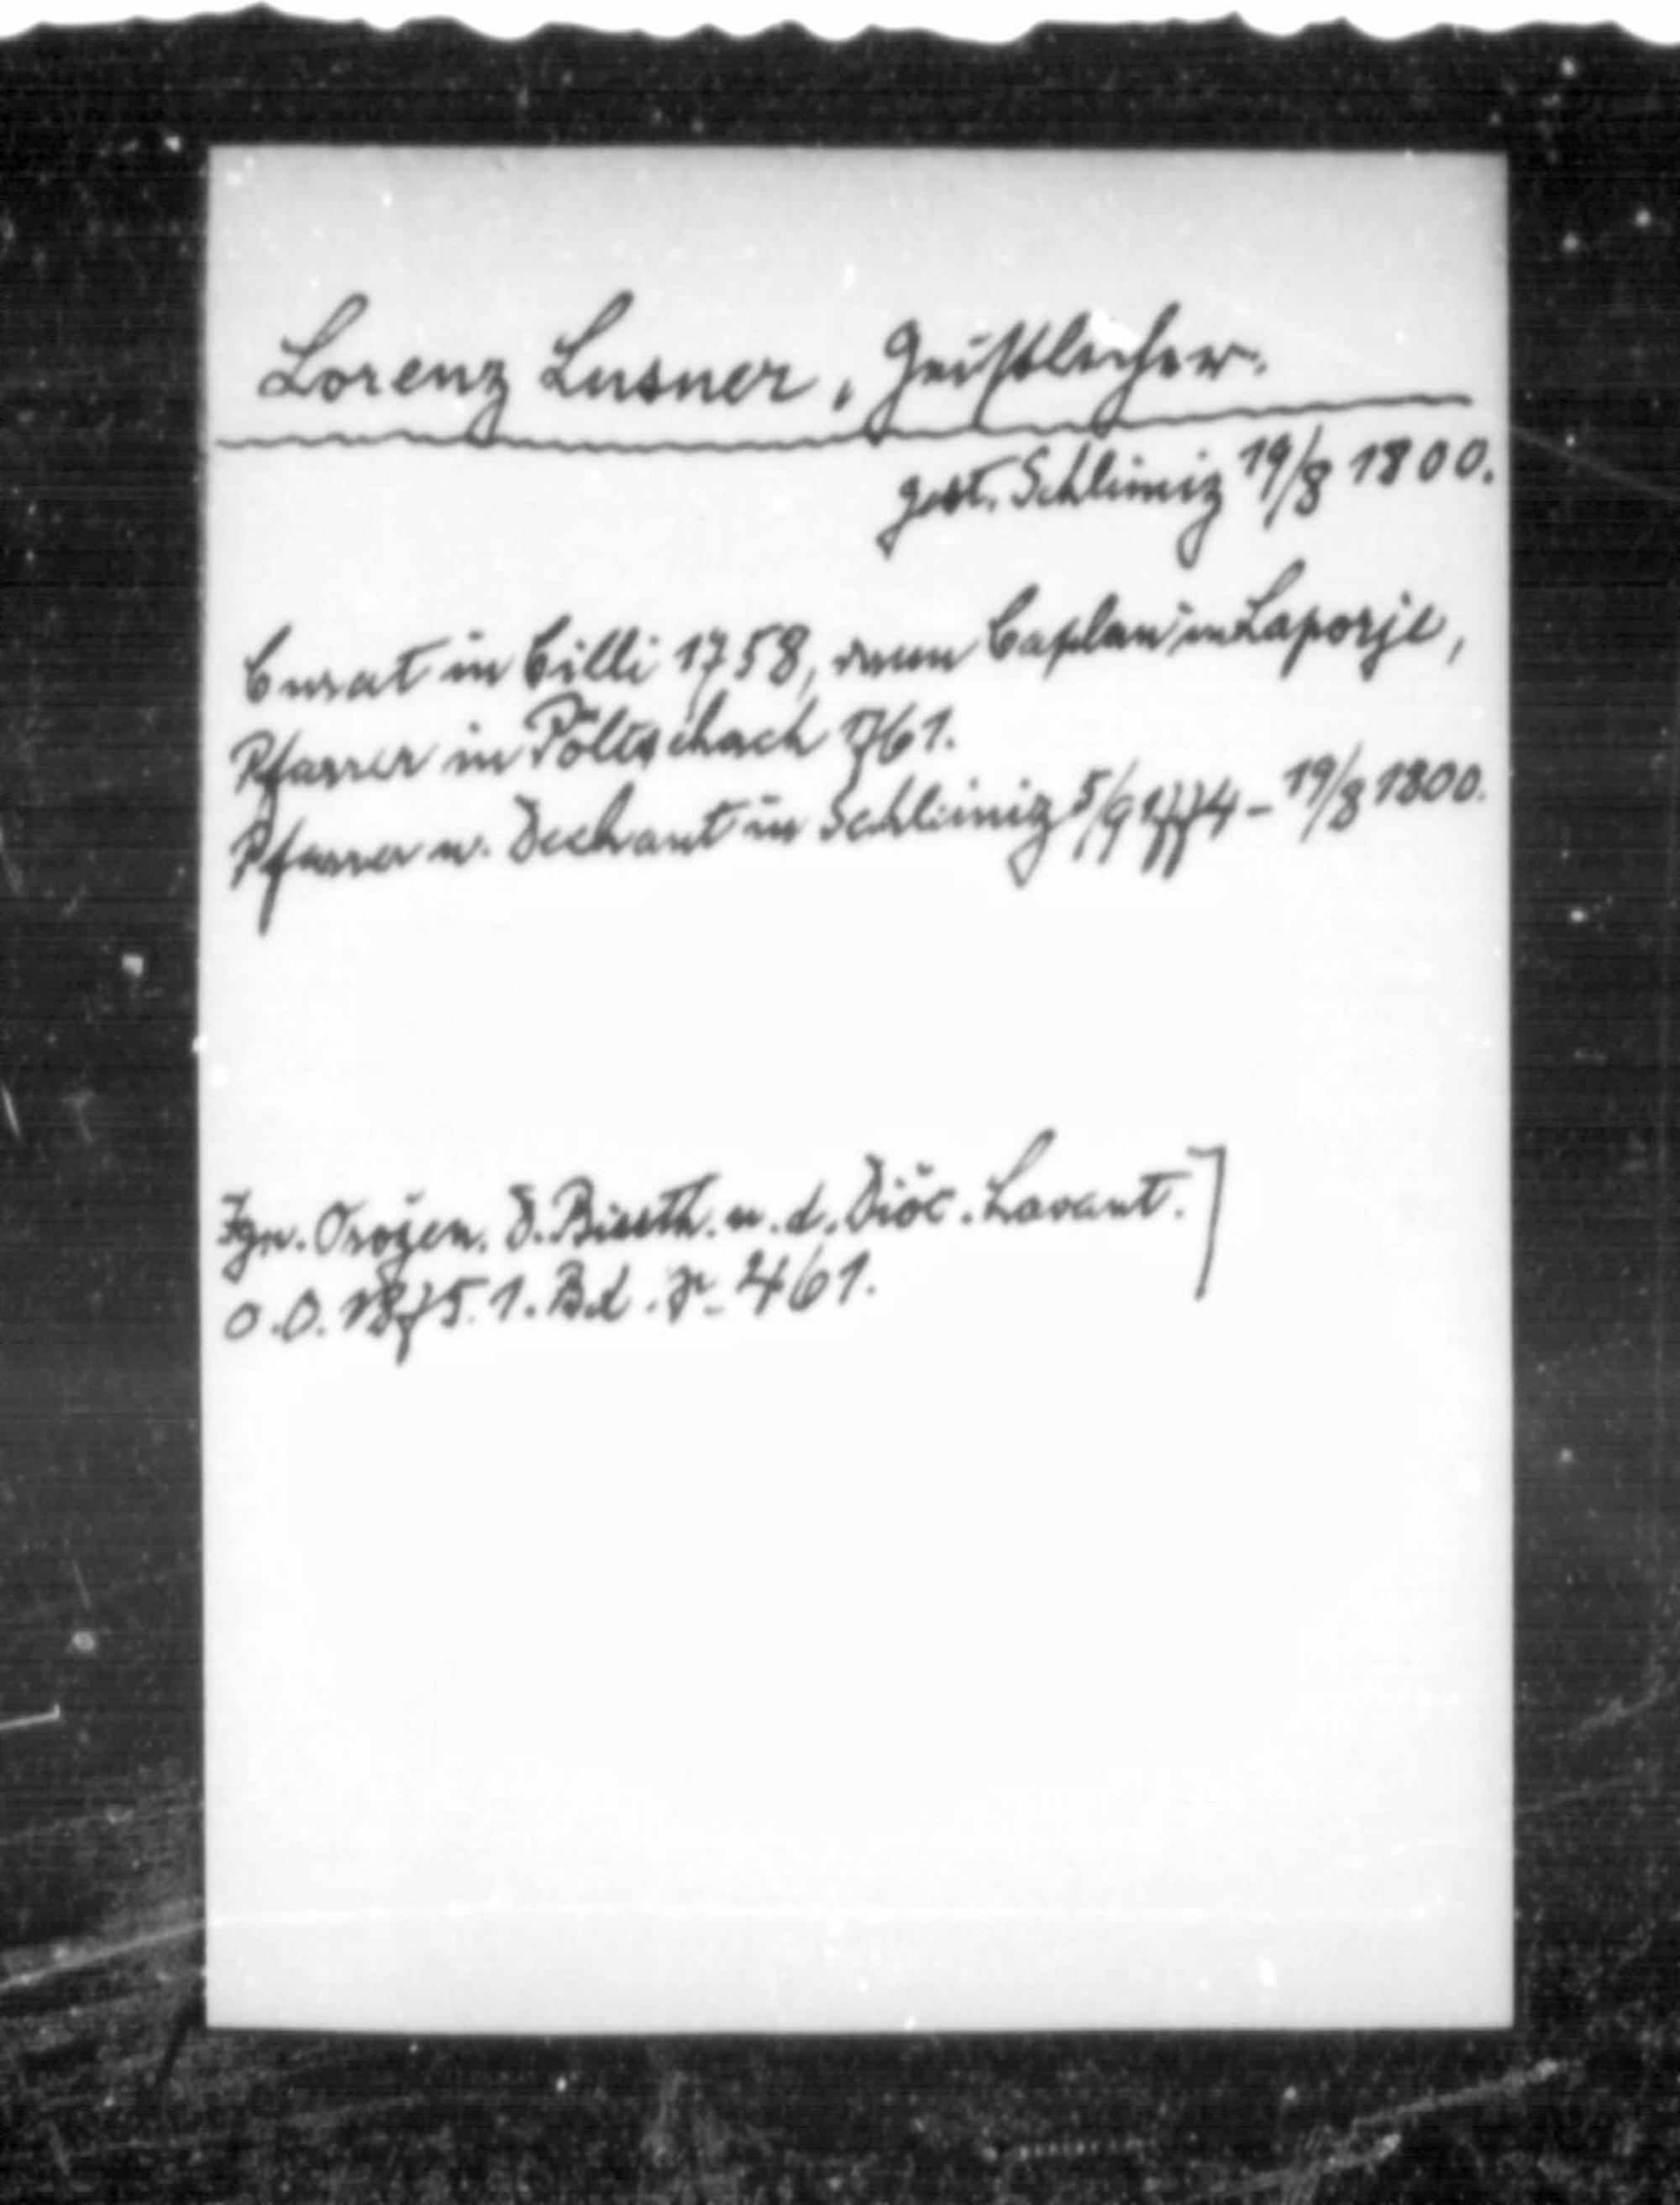 Lorenz Lusner, Geistlicher.
gest. Schleiniz 19/8 1800.
Curat in Cilli 1758, dann Caplan in Laporje,
Pfarrer in Pöltschach 1761.
Pfarrer u. Dechant in Schleiniz 5/9 1774 - 19/8 1800.
Ign. Orožen. D. Bisth. u. d. Diöc. Lavant.]
O.O. 1875. 1. Bd. S. 461.